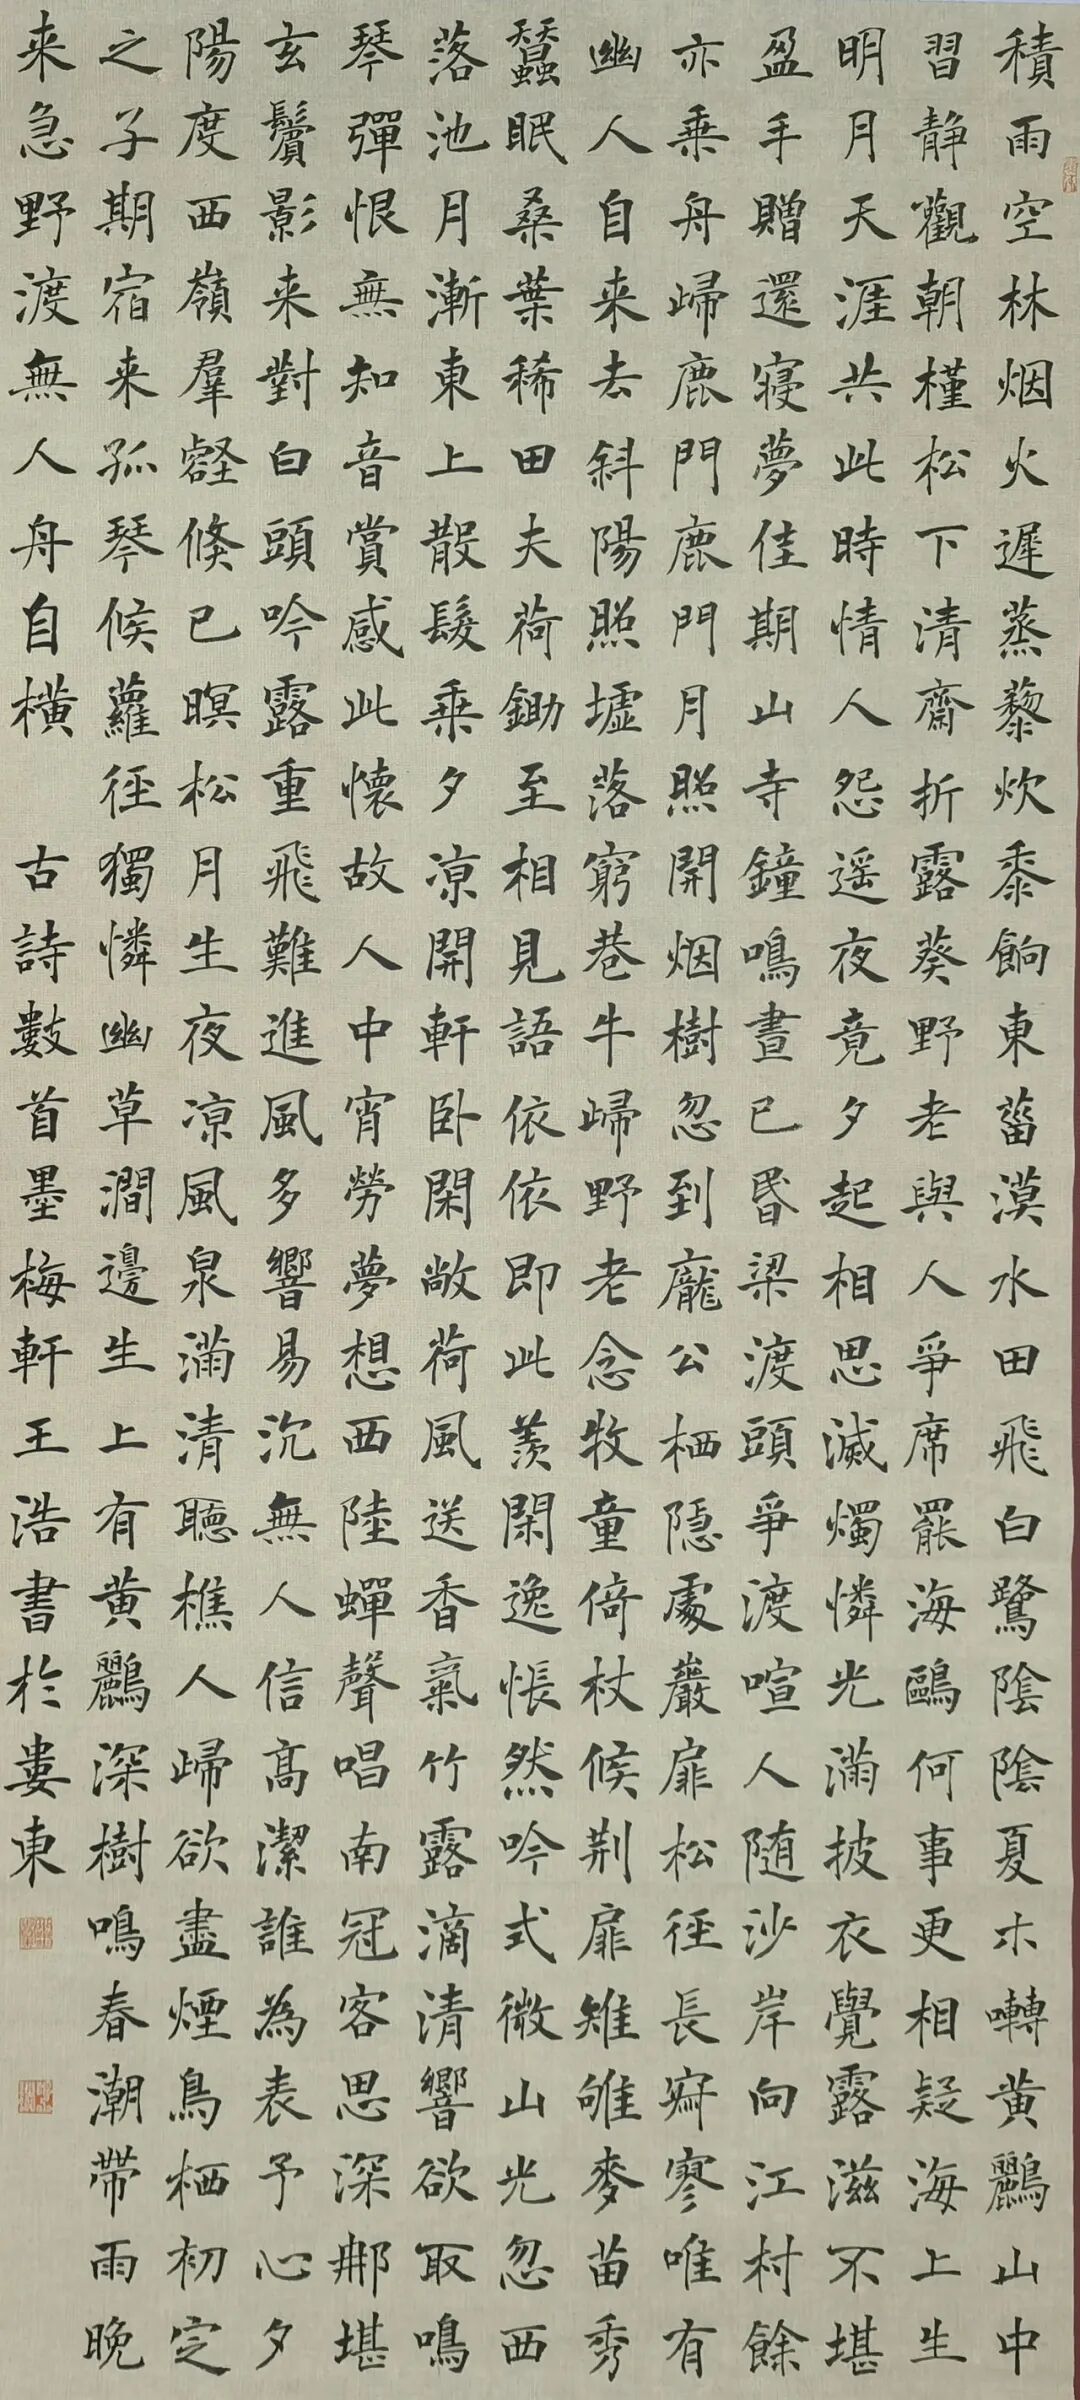 積雨空林烟火遲蒸藜炊黍餉東菑漠水田飛白鷺陰陰夏木囀黄鸝山中
習静觀朝槿松下清齋折露葵野老與人爭席罷海鷗何事更相疑海上生
明月天涯共此時情人怨遥夜竟夕起相思滅燭憐光滿披衣覺露滋不堪
盈手贈還寢夢佳期山寺鐘鳴晝已昏梁渡頭爭渡喧人随沙岸向江村餘
亦乘舟歸鹿門鹿門月照開烟樹忽到龐公栖隱處巖扉松徑長寂寥唯有
幽人自来去斜陽照墟落窮巷牛歸野老念牧童倚杖候荆扉雉雊麥苗秀
蠶眠桑葉稀田夫荷鋤至相見語依依即此羨閑逸悵然吟式微山光忽西
落池月漸東上散髮乘夕凉開軒卧閑敞荷風送香氣竹露滴清響欲取鳴
琴彈恨無知音賞感此懷故人中宵勞夢想西陸蟬聲唱南冠客思深那堪
玄鬢影来對白頭吟露重飛難進風多響易沉無人信高潔誰為表予心夕
陽度西嶺羣壑倏已暝松月生夜凉風泉滿清聽樵人歸欲盡煙鳥栖初定
之子期宿来孤琴候蘿徑獨憐幽草澗邊生上有黄鸝深樹鳴春潮帶雨晚
来急野渡無人舟自横 古詩數首墨梅軒王浩書於婁東